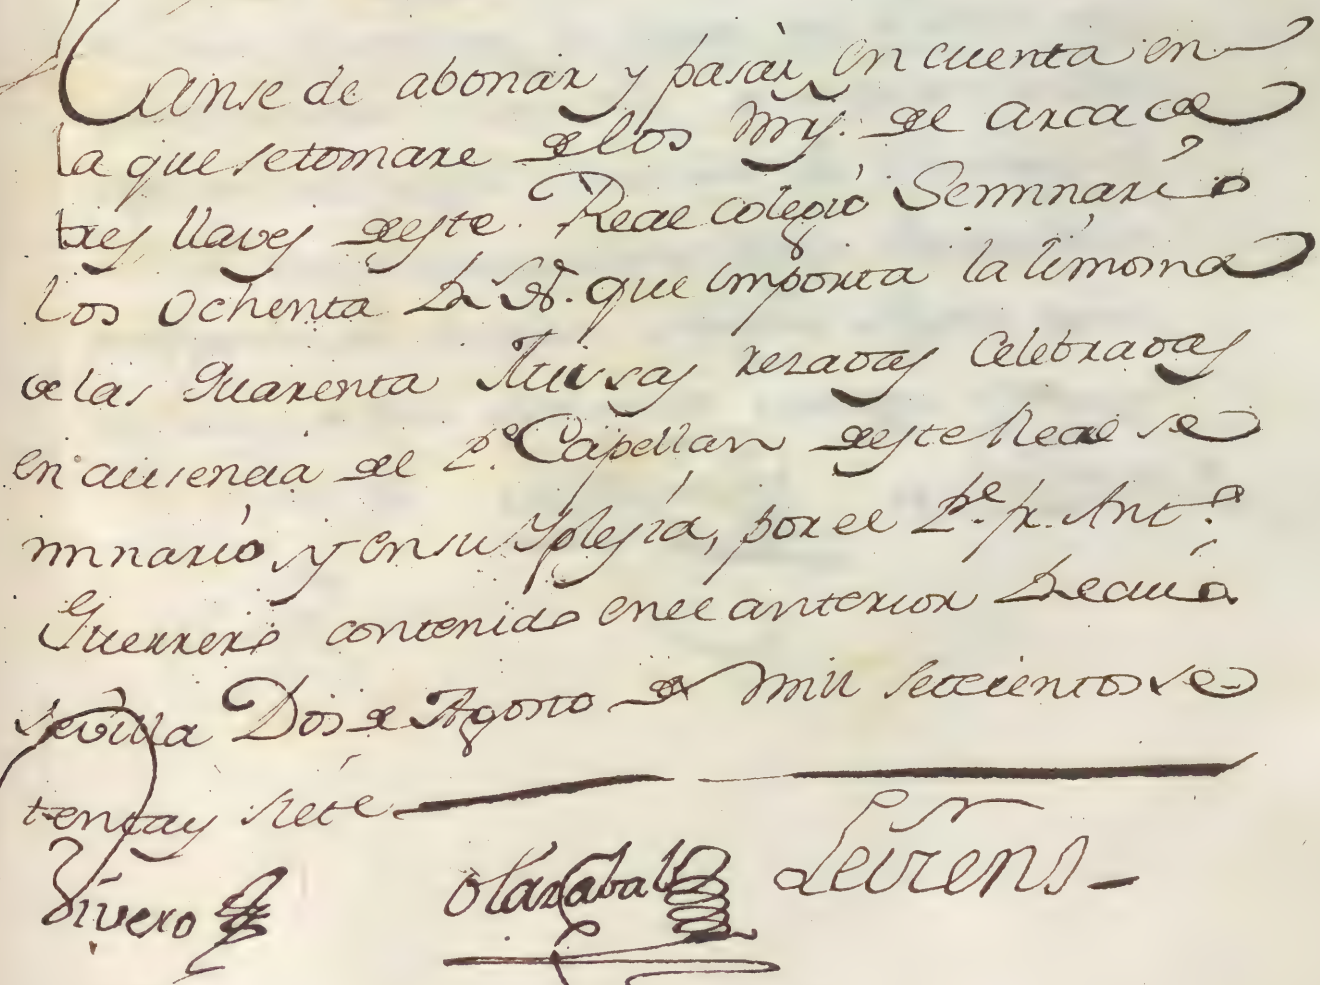 Canse de abonar y pasar en cuenta en
la que se tomare de los Mrs. del arca de
tres llaves deste. Real Colegio Seminario
los ochenta Rs Vn. que importa la limosna
de las quarenta Missas rezadas Celebradas
en ausencia del 2º. Capellan deste Real Se
minario, y en su Yglesia, por el Pe. fr. Antº.
Guerrero contenido en el anterior Recivo.
Sevilla Dos de Agosto de mil setecientos se
tenta y siete
Rivero Olazabal Leirens